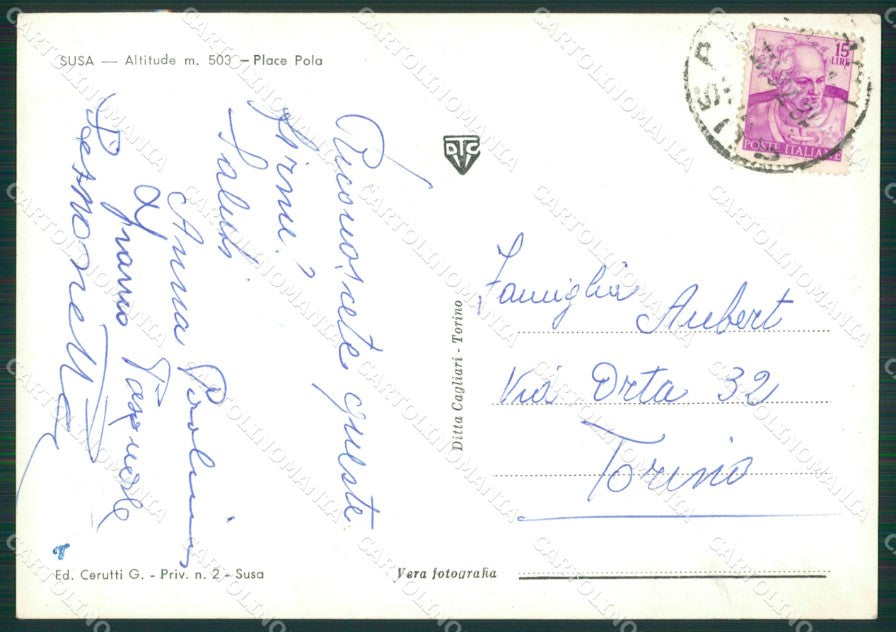 SUSA — Altitude m. 503 — Place Pola
15
LIRE
POSTE ITALIANE
Riconoscete queste
firme?
Saluti
Anna Paolina
Franco Pasquale
Simonetta
DCT
Famiglia Aubert
Via Orta 32
Torino
Ditta Cagliari - Torino
Ed. Cerutti G. - Priv. n. 2 - Susa
Vera fotografia
CARTOLINOMANIA